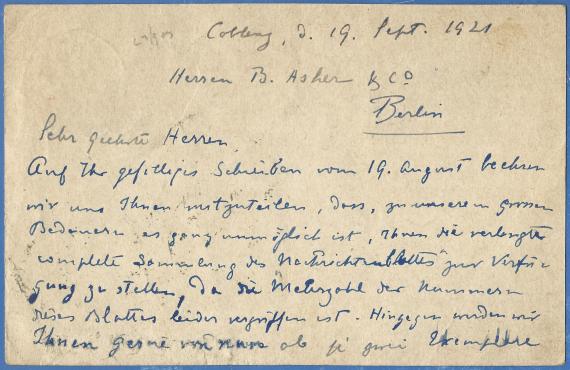 Coblenz, d. 19. Sept. 1921
Herren B. Asher & Co
Berlin
Sehr geehrte Herren
Auf Ihr gefälliges Schreiben vom 19. August beehren
wir uns Ihnen mitzuteilen, dass, zu unserem grossen
Bedauern es ganz unmöglich ist, Ihnen die verlangte
complete Sammlung des Nachrichtenblattes zur Verfü-
gung zu stellen, da die Mehrzahl der Nummern
dieses Blattes leider vergriffen ist. Hingegen werden wir
Ihnen gerne von nun ab je zwei Exemplare